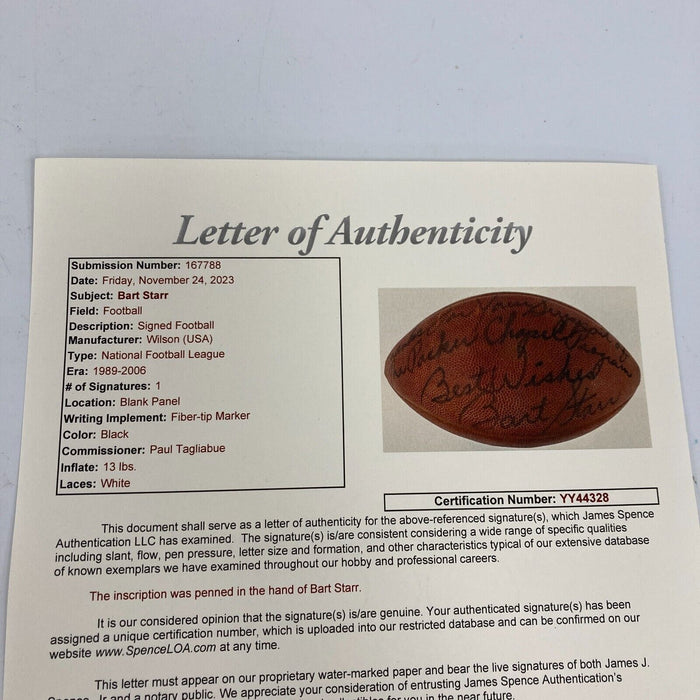 Letter of Authenticity
Submission Number: 167788
Date: Friday, November 24, 2023
Subject: Bart Starr
Field: Football
Description: Signed Football
Manufacturer: Wilson (USA)
Type: National Football League
Era: 1989-2006
# of Signatures: 1
Location: Blank Panel
Writing Implement: Fiber-tip Marker
Color: Black
Commissioner: Paul Tagliabue
Inflate: 13 lbs.
Laces: White
on Your
Packer Chapel Program
Best Wishes
Bart Starr
Certification Number: YY44328
This document shall serve as a letter of authenticity for the above-referenced signature(s), which James Spence
Authentication LLC has examined. The signature(s) is/are consistent considering a wide range of specific qualities
including slant, flow, pen pressure, letter size and formation, and other characteristics typical of our extensive database
of known exemplars we have examined throughout our hobby and professional careers.
The inscription was penned in the hand of Bart Starr.
It is our considered opinion that the signature(s) is/are genuine. Your authenticated signature(s) has been
assigned a unique certification number, which is uploaded into our restricted database and can be confirmed on our
website www.SpenceLOA.com at any time.
This letter must appear on our proprietary water-marked paper and bear the live signatures of both James J.
Spence, Jr and a notary public. We appreciate your consideration of entrusting James Spence Authentication's
for you in the near future.